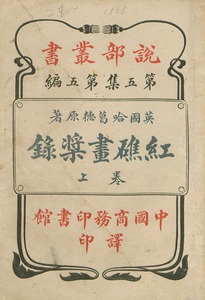 說部叢書
第五集第五編
英國哈葛德原著
紅礁畫槳錄
卷上
中國商務印書館
譯印